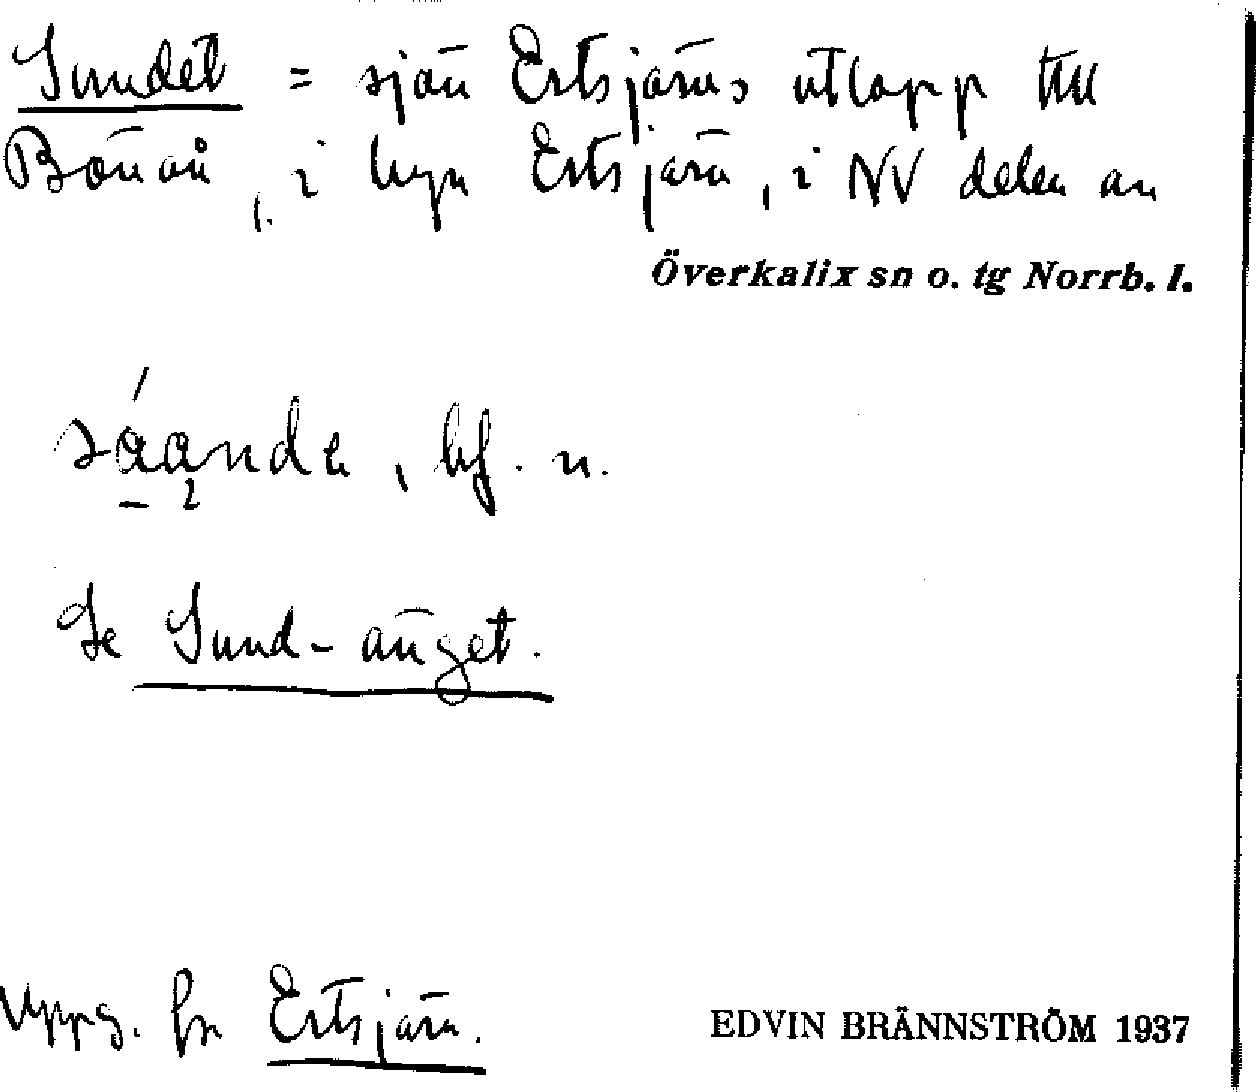 Sundet = sjön Ertsjärvs utlopp till
Bönån, i byn Ertsjärv, i NV delen av
Överkalix sn o. tg Norrb. l.
sáandɛ, bf. n.
Se Sund-änget.
Uppg. fr Ertsjärv.
EDVIN BRÄNNSTRÖM 1937